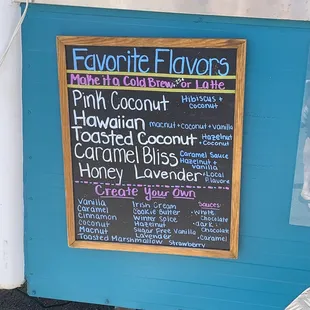 Favorite Flavors
Make it a Cold Brew or Latte
Pink Coconut Hibiscus + Coconut
Hawaiian macnut + coconut + vanilla
Toasted Coconut Hazelnut + Coconut
Caramel Bliss Caramel Sauce Hazelnut + vanilla
Honey Lavender Local Flavor
Create Your Own
Vanilla Irish Cream Sauces
Caramel Cookie Butter White
Cinnamon Winter Spice Chocolate
Coconut Hazelnut Dark
Macnut Sugar Free Vanilla Chocolate
Toasted Marshmallow Lavender Caramel
Strawberry